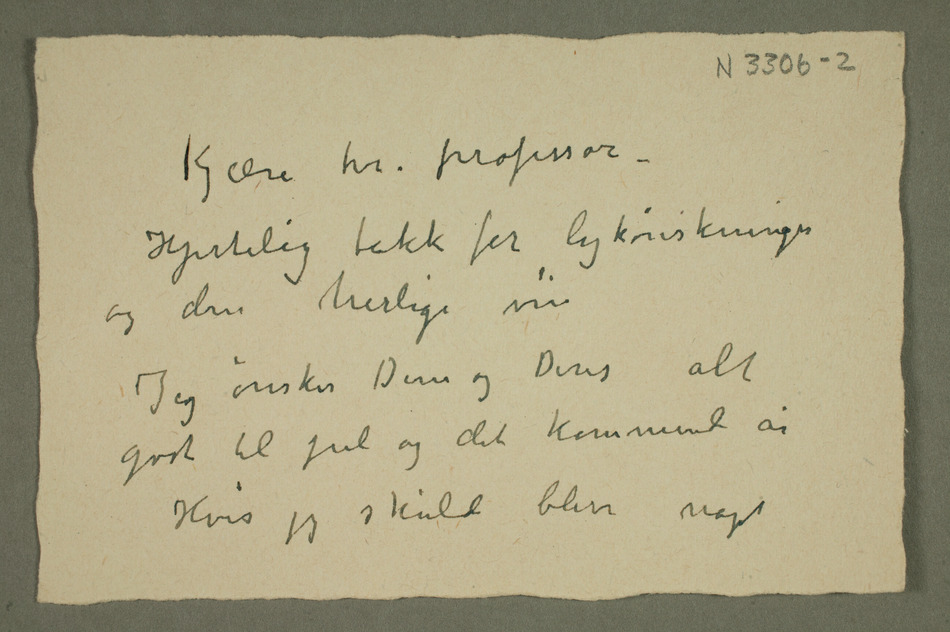 N 3306-2
Kjære hr. professor_
Hjertelig takk for lykønskninger
og den herlige vin
Jeg ønsker Dem og Deres alt
godt til jul og det kommend år
Hvis jeg skuld blive noget